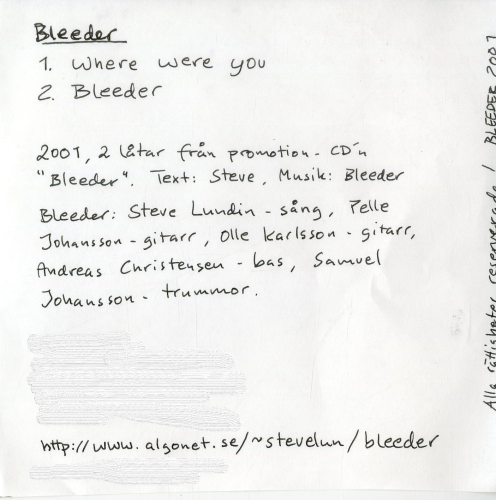 Bleeder
1. Where were you
2. Bleeder
2001, 2 låtar från promotion-CD´n
"Bleeder". Text: Steve, Musik: Bleeder
Bleeder: Steve Lundin - sång, Pelle
Johansson - gitarr, Olle Karlsson - gitarr,
Andreas Christensen - bas, Samuel
Johansson - trummor.
http://www.algonet.se/~stevelun/bleeder
Alla rättigheter reserverade / BLEEDER 2001